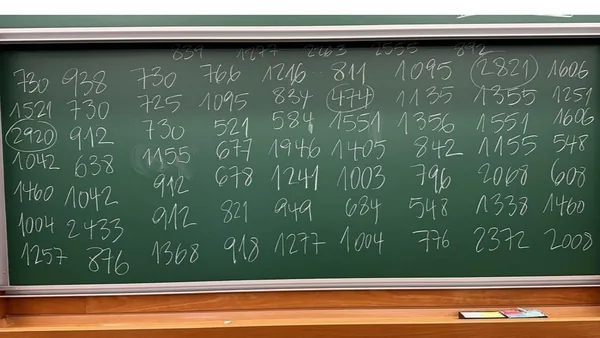 839 1277 2263 2555 892
730 938 730 766 1216 811 1095 2821 1606
1521 730 725 1095 834 474 1135 1355 1251
2920 912 730 521 584 1551 1356 1551 1606
1042 638 1155 677 1946 1405 842 1155 548
1460 1042 912 678 1241 1003 796 2068 608
1004 2433 912 821 949 684 548 1338 1460
1257 876 1368 918 1277 1004 776 2372 2008